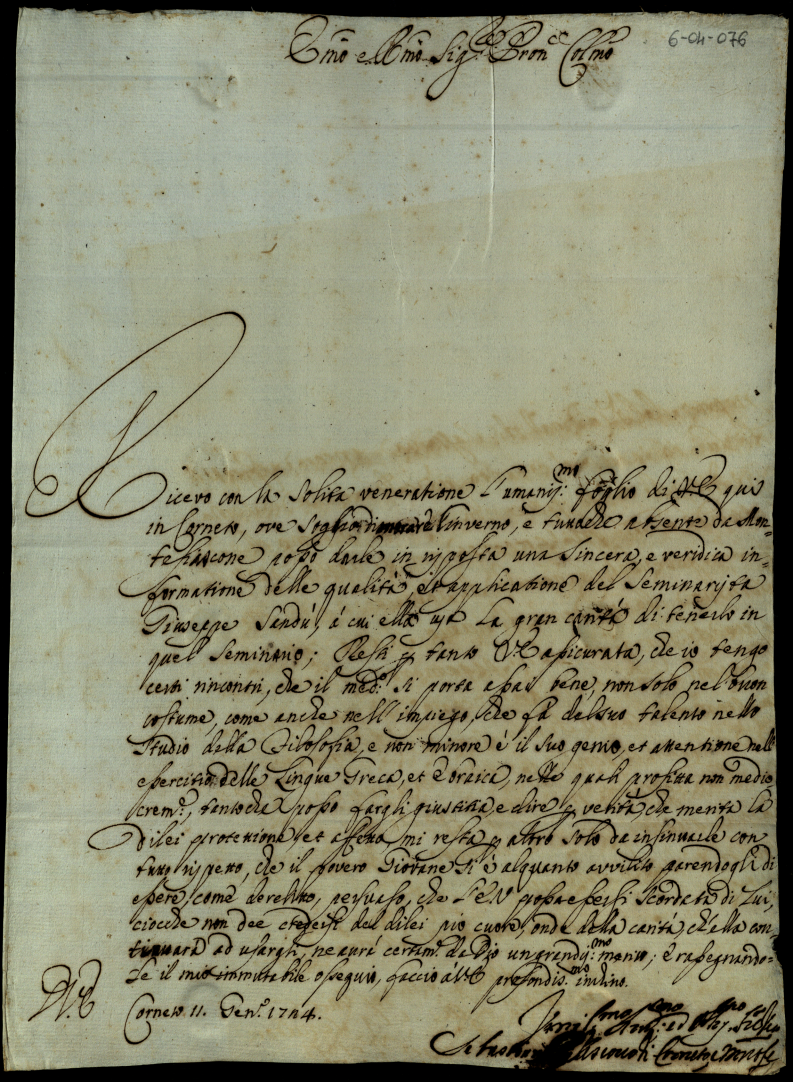 6-04-076
Emo e Rmo Sig.re Pron Colmo
Ricevo con la solita veneratione l'umaniss:mo foglio di V.E. quì
in Corneto, ove soglio l'inverno, e tuttoche absente da Mon=
tefiascone posso darle in risposta una sincera, e veridica in=
formatione delle qualità, et applicatione del Seminarista
Giuseppe Sandù, á cui ella usa la gran carità di tenerlo in
quel Seminario; Resti p tanto V.E. assicurata, che io tengo
certi rincontri, che il med.o si porta assai bene, non solo nel buon
costume, come anche nell'impiego, che fà del suo talento nello
studio della Filosofia, e non minore é il suo genio, et attentione nell
esercitio delle Lingue Greca, et Ebraica, nelle quali profitta non medio=
crem.e, tantoche posso fargli giustitia, e dire p verità, che merita la
di lei protezione, et affetto, mi resta p altro solo da insinuarle con
tutto rispetto, che il povero Giovane si é alquanto avvilito parendogli di
essere come derelitto, persuaso, che l'E.V. possa essersi scordata di Lui,
ciocche non dee credersi del di lei pio cuore, onde della carità, ch'ella con=
tinuarà ad usargli, ne aurá certam.e da Dio un grandiss:mo merito; e rassegnando=
le il mio immutabile ossequio, faccio á V.E. profondis.mo inchino.
D. V. E.
Corneto 11. Gen.o 1744.
Corneto e Montefi